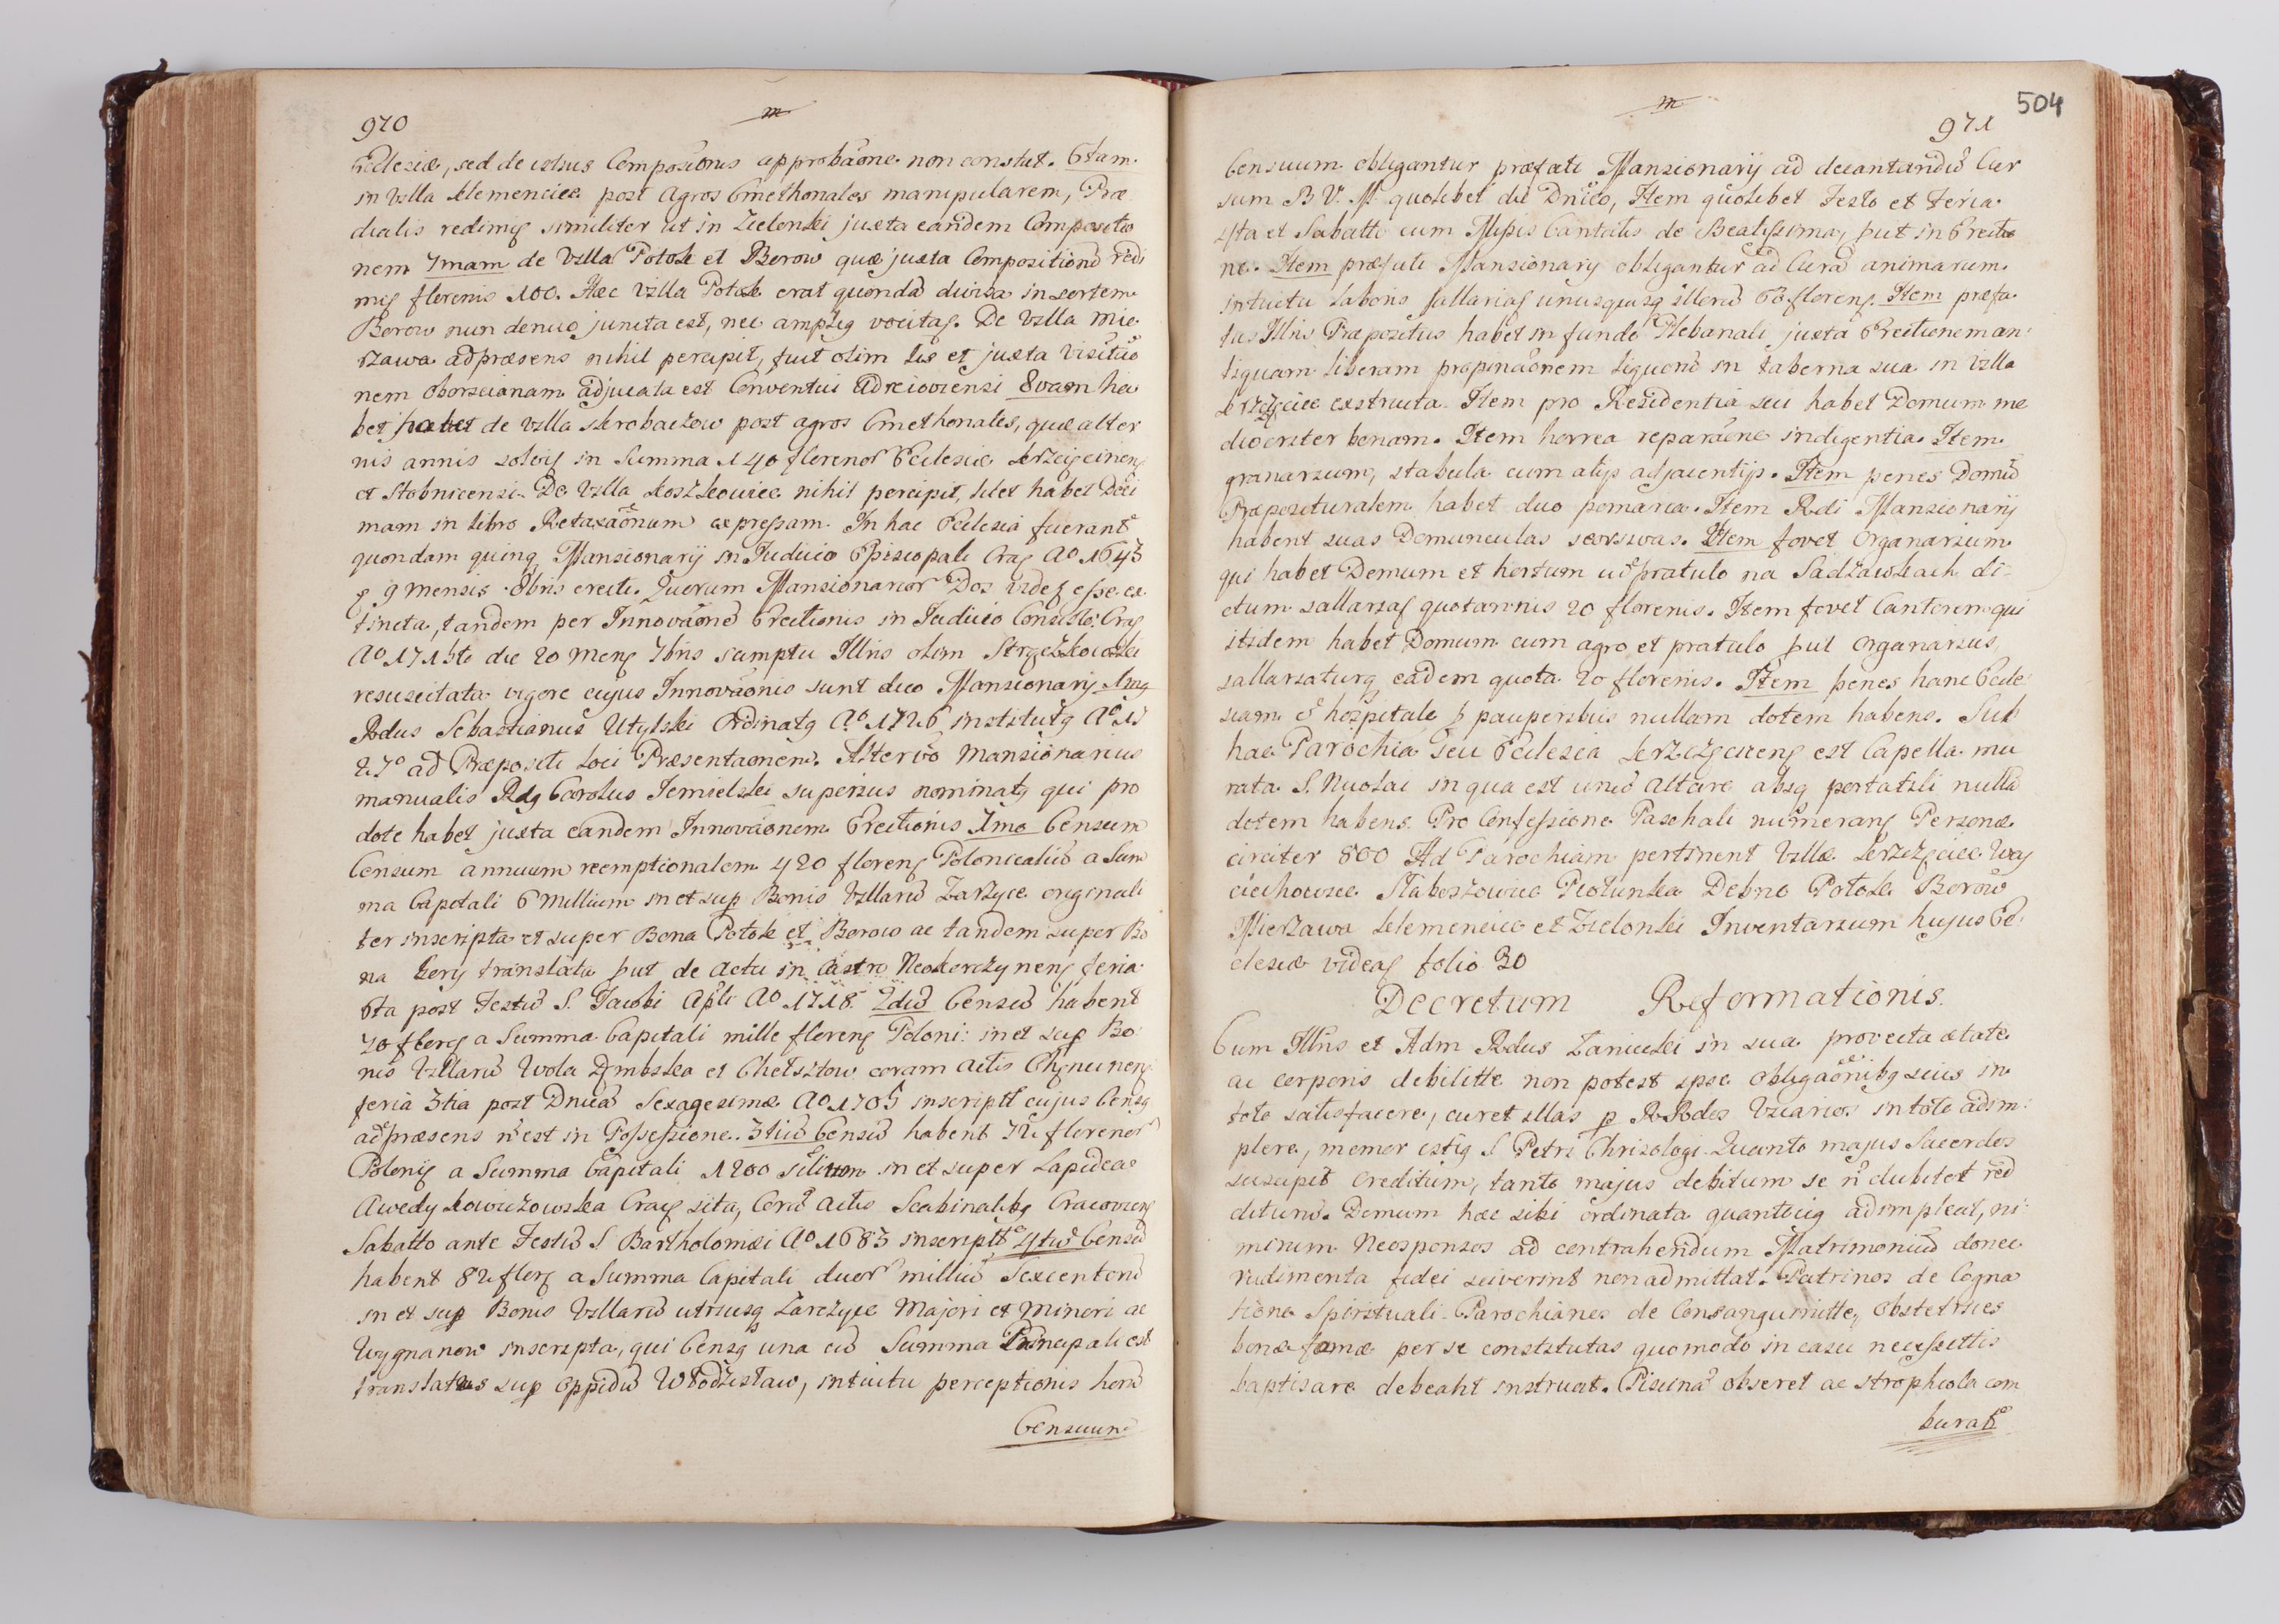 970
m
Ecclesiæ, sed de istius Compositionis approbaõne non constat. 6tam
in Villa Klemencice post Agros Cmethonales manipularem, Præ
dialis redimię similiter ut in Zielonki juxta eandem Compositio
nem 7mam de Villa Potok et Borow quæ juxta Compositionē redi
mię florenis 100. Hæc Villa Potok erat quondā divisa in sortem
Borow nun denuo juncta est, nec amplię vocitaę. De Villa Mie
rzawa adpræsens nihil percipit, fuit olim lis et juxta Visitaõ
nem Oborscianam adjucata est Conventui Adreioviensi 8vam ha
bet habet de villa Skrobaczow post agros Cmethonales, quæ alter
nis annis solvię in Summa 140 florenor Ecclesiæ Krzcięcinenę
et Stobnicensi. De Villa Koszkowice nihil percipit, licet habet Deci
mam in libro Retaxaõnum expressam. In hac Ecclesia fuerant
quondam quinq Mansionarij in Judicio Episcopali Craę Ao 1643
ę 9 mensis Obris erecti. Quorum Mansionarior Dos videę esse ex
tincta, tandem per Innovaõnē Erectionis in Judicio Consisto: Craę
Ao 1715to die 20 Menę 7bris sumptu Illris olim Strzeżkowski
resuscitata vigore cujus Innovaõnis sunt duo Mansionarij Imę
Rdus Sebastianus Utylski Ordinatę Ao 1726 institutę Ao 17
27o ad Præpositi loci Præsentaõnem. Alter vō Mansionarius
manualis Rdę Carolus Jemielski superius nominatę qui pro
dote habet juxta eandem Innovaõnem Erectionis Imo Censum
Censum annuum reemptionalem 420 florenę Polonicaliū a Sum
ma Capitali 6 Millium in et sup Bonis Villarū Zarzyce originali
ter inscripta et super Bona Potok et Borow ac tandem super Bo
na Gory translata put de Actu in Castro Neokorczynenę feria
6ta post Festū S. Jacobi Apli Ao 1718. 2dū Censū habent
70 florę a Summa Capitali mille florenę Poloni: in et sup Bo:
nis Villarū Wola Zębska et Chełsztow coram Actis Chęcinenę
feria 3tia post Dnicā Sexagesimæ Ao 1705 inscriptt cujus Censę
adpræsens ñ est in Possessione. 3tiū Censū habent 72 florenor
Polonię a Summa Capitali 1200 similium in et super Lapidea
Awedykowiczowska Craę sita, Corā Actis Scabinalibę Cracovienę
Sabatto ante Festū S Bartholomæi Ao 1683 inscriptt 4tū Censū
habent 82 florę a Summa Capitali duor milliū Sexcentorū
in et sup Bonis Villarū utriusq Zarczyce Majori et Minori ac
Wygnanow inscripta, qui Censę una cū Summa Principali est
translatus sup Oppidū Włodzisław, intuitu perceptionis horū
Censuum
m
504
971
Censuum obligantur præfati Mansionarij ad decantandū Cur
sum B.V.M. quolibet die Dnico, Item quolibet Festo et Feria
4ta et Sabatti cum Missis Cantatis de Beatissima, put in Erectio
ne. Item præfati Mansionarij obligantur ad Curā animarum
intuitu laboris sallariaę unusquisq illorū 60 florenę. Item præfa
tus Illris Præpositus habet in fundo Plebanali juxta Erectionem an
tiquam liberam propinaõnem liquorū in taberna sua in Villa
Krzczęcice exstructa. Item pro Residentia sui habet Domum me
diocriter bonam. Item horrea reparaõne indigentia. Item
granarium, stabula cum alijs adjacentijs. Item penes Domū
Præposituralem habet duo pomaria. Item Rdi Mansionarij
habent suas Domunculas seorsivas. Item fovet Organarium
qui habet Domum et hortum cū pratulo na Sadzawkach di
ctum sallariaę quotannis 20 florenis. Item fovet Cantorem qui
itidem habet Domum cum agro et pratulo put Organarius,
sallariaturq eadem quota 20 florenis. Item penes hanc Eccle
siam ē hospitale p pauperibus nullam dotem habens. Sub
hac Parochia seu Ecclesia Krzczęcinenę est Capella mu
rata S. Nicolai in qua est unū Altare absq portatili nullā
dotem habens. Pro Confessione Paschali numeranę Personæ
circiter 800 Ad Parochiam pertinent Villæ Krzczęcice Woy
ciechowice Słaboszowice Piołunka Dębno Potok Borow
Mierzawa Klemencice et Zielonki Inventarium hujus Ec
clesiæ videaę folio 30
Decretum Reformationis.
Cum Illris et Adm Rdus Zaniecki in sua provecta ætate
ac corporis debilitte non potest ipse obligaõnibę suis in
toto satisfacere, curet illas p RRdos Vicarios in toto adim
plere, memor istię S Petri Chrisologi. Quanto majus Sacerdos
suscepit creditum, tanto majus debitum se ñ dubitet red
diturū. Demum hæc sibi ordinata quantocię adimpleat, ni
mirum Neosponsos ad contrahendum Matrimoniū donec
rudimenta fidei sciverint non admittat. Patrinos de Cogna
tione Spirituali Parochianos de Consanguinitte, Obstetrices
bonæ famæ per se constitutas quomodo in casu necessittis
baptisare debeant instruat. Piscinā obseret ac strophiola com
burat